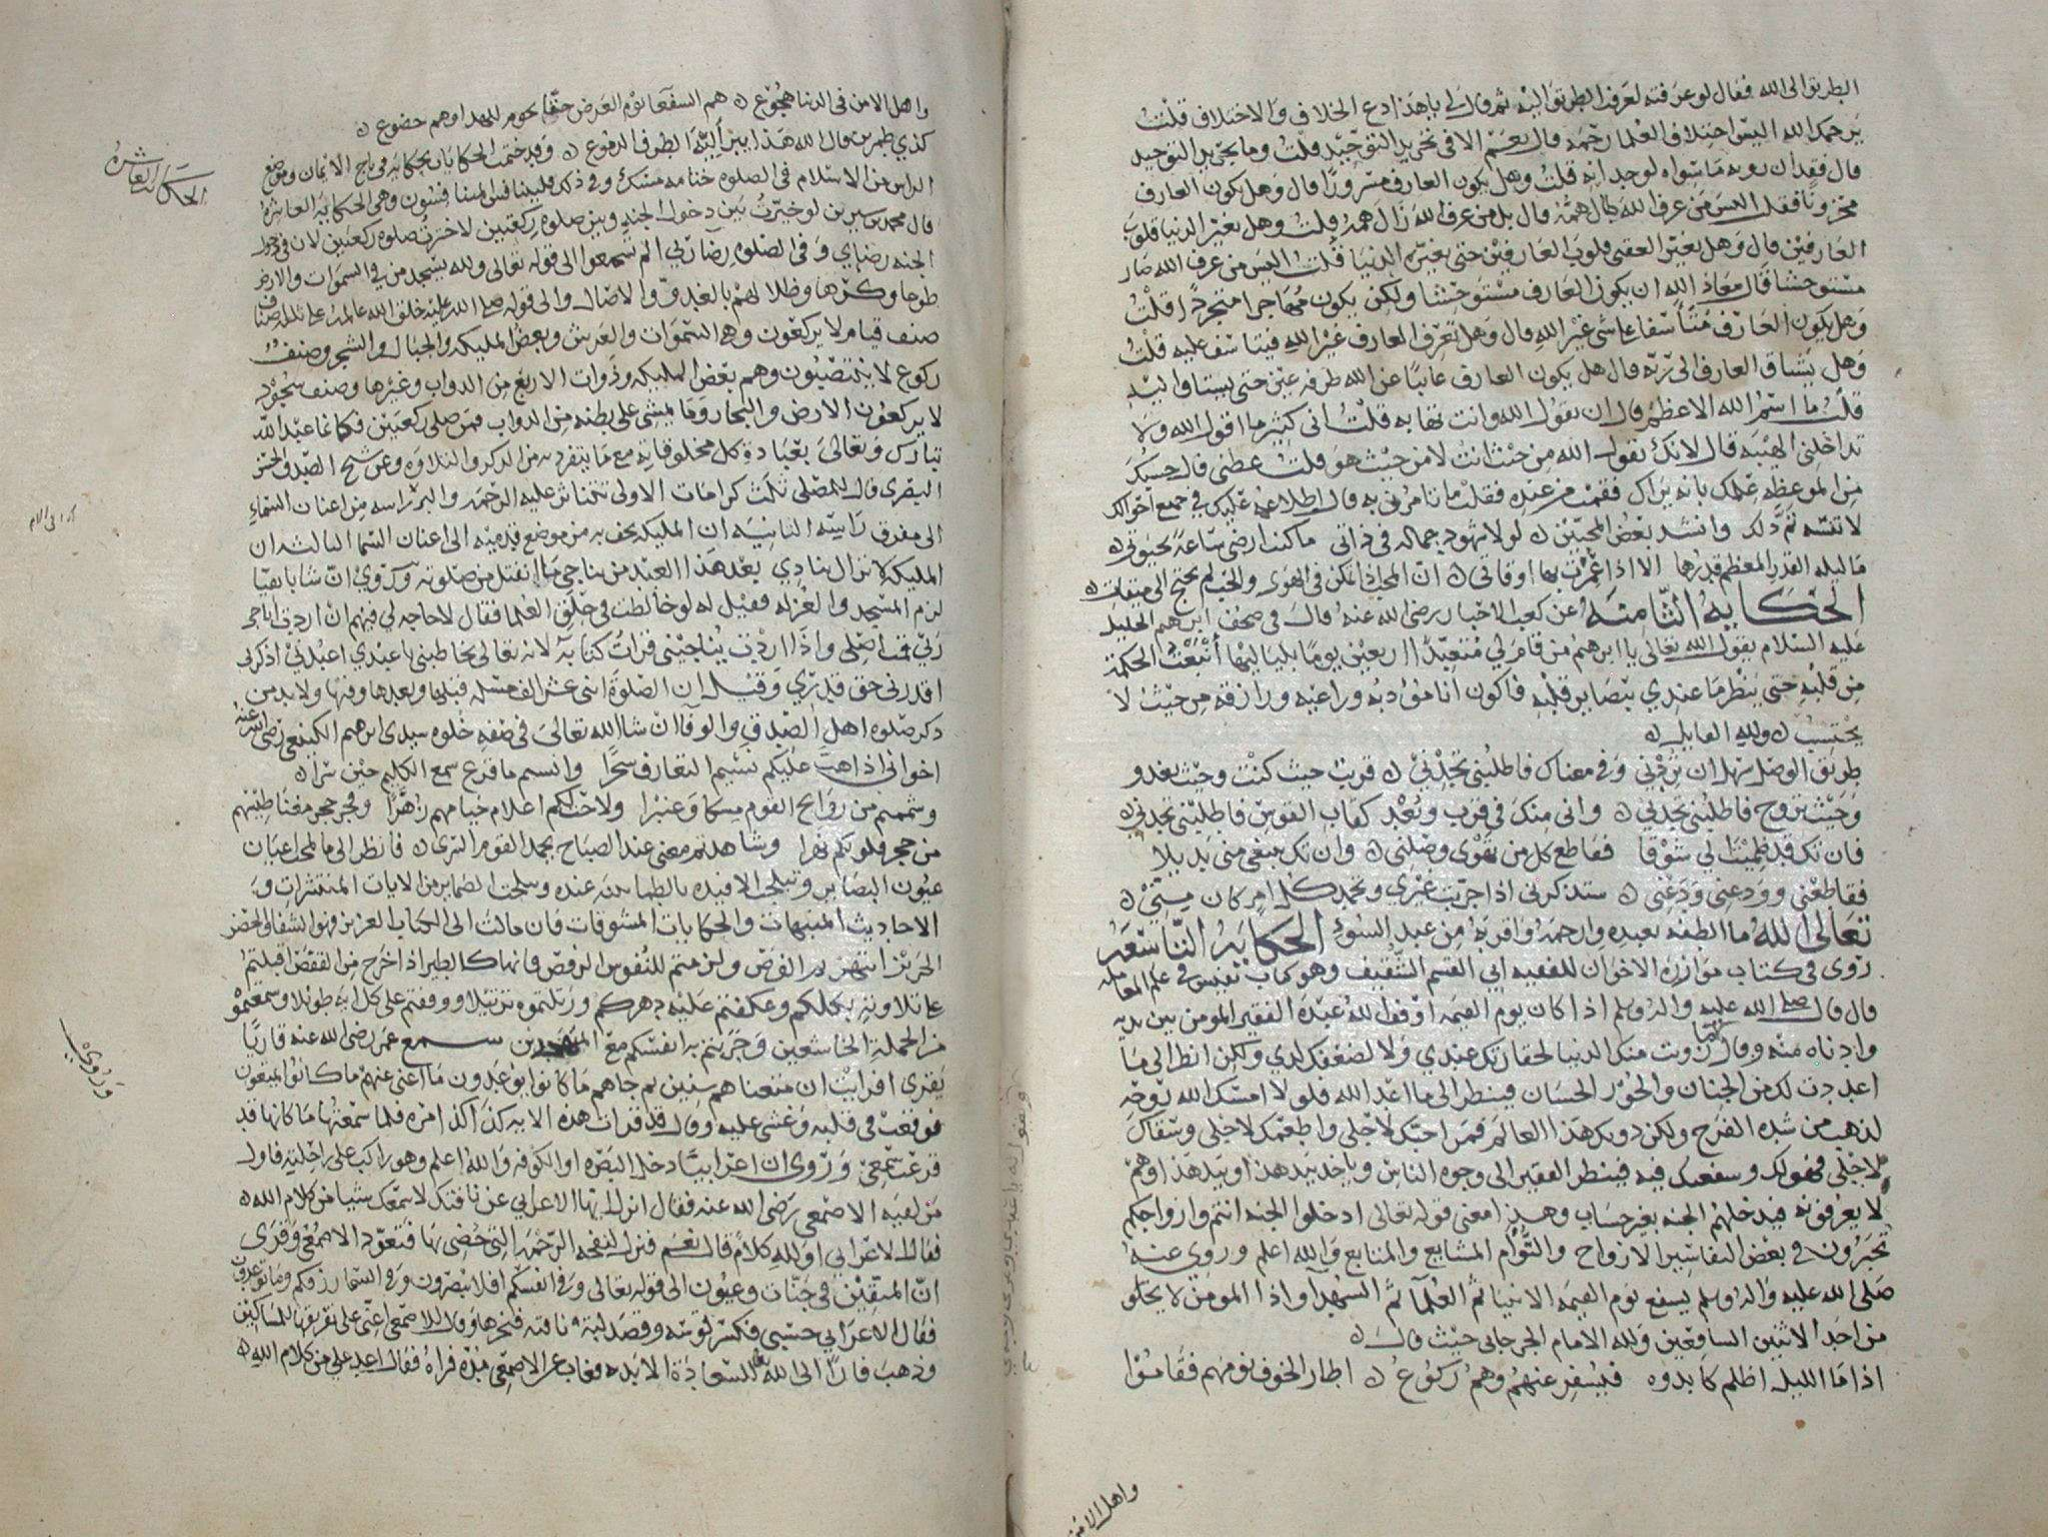 الطريق الى الله فقال لو عرفته لعرفت الطريق اليه ثم قال لي يا هذا دع الخلاف والاختلاف قلت
يرحمك الله اليس اختلاف العلما رحمه قال نعم الا في تجريد التوحيد قلت وما تجريد التوحيد
قال فقدان رويه ما سواه لوجدانه قلت وهل يكون العارف مسرورا قال وهل يكون العارف
محزونا فقلت اليس من عرف الله طال همه قال بل من عرف الله زال همه قلت وهل تغير الدنيا قلوب
العارفين قال وهل تغير العقبى قلوب العارفين حتى تغيره الدنيا قلت اليس من عرف الله صار
مستوحشا قال معاذ الله ان يكون العارف مستوحشا ولكن يكون مهاجرا متجردا قلت
وهل يكون العارف متأسفا على شي غير الله قال وهل تعرف العارف غير الله فيتاسف عليه قلت
وهل يشتاق العارف الى ربه قال هل يكون العارف غايبا عن الله طرفه عين حتى يشتاق اليه
قلت ما اسم الله الاعظم قال ان تقول الله وانت تهابه قلت اني كثيرا ما اقول الله ولا
تداخلني الهيبه قال لانك تقول الله من حيث انت لا من حيث هو قلت عظني قال حسبك
من الموعظه علمك بانه يراك فقمت من عنده فقلت ما تامرني به قال اطلاعه عليك في جميع احوالك
لا تنسه ثم ذلك وانشد بعض المحبين لولا شهود جماله في ذاتي ما كنت ارضى ساعة بحيوتي
ما ليله القدر المعظم قدرها الا اذا عمرت بها اوقاتي ان المحب اذا تمكن في الهوى والحب لم يحتج الى ميقات
الحكايه الثامنه عن كعب الاحبار رضي الله عنه قال في صحف ابرهيم الخليل
عليه السلام يقول الله تعالى يا ابرهيم من قام لي متعبدا اربعين يوما بلياليها أنبعت الحكمة
من قلبه حتى ينظر ما عندي ببصاير قلبه فاكون انا مؤدبه وراعيه ورازقه من حيث لا
يحتسب ولله القايل
طريق الوصل سهل ان تردني وفي معناك فاطلبني تجدني قريب حيث كنت وحيث تغدو
وحيث تروح فاطلبني تجدني واني منك في قرب وبعد كقاب القوس فاطلبني تجدني
فان تك قد ظميت لي شوقا فقاطع كل من تهوى وصلني وان تك تبتغي مني بديلا
فقاطعني وودعني ودعني ستذكرني اذا جربت غيري وتحمد كل امر كان مني
تعالى الله ما الطفه بعبده وارحمه واقربه من عبد السوء الحكايه التاسعه
روى في كتاب موازرة الاخوان للفقيه ابي القسم الشقيف وهو كتاب نفيس في علم المعامله
قال قال صلى الله عليه واله وسلم اذا كان يوم القيمه اوقف الله عبده الفقير المومن بين يديه
وادناه منه وقال ما زويت منك الدنيا لحقارتك عندي ولا لضعفك لدي ولكن انظر الى ما
اعددت لك من الجنان والحور الحسان فينظر الى ما اعد الله فلولا امسك الله روحه
لذهب من شده الفرح ولكن دونك هذا العالم فمن احبك لاجلي واطعمك لاجلي وسقاك
لاجلي فهو لك وشفعتك فيه فينظر الفقير الى وجوه الناس وياخذ بيد هذا وبيد هذا وهم
لا يعرفونه فيدخلهم الجنه بغير حساب وهذا معنى قوله تعالى ادخلوا الجنه انتم وازواجكم
تحبرون في بعض التفاسير الازواح والتوأم المشايع والمتابع والله اعلم وروي عنه
صلى الله عليه واله وسلم يشفع يوم القيمه الانبيا ثم العلما ثم الشهدا واذا المومن لا يخلو
من احد الاثنين الشافعين ولله الامام الجرجاني حيث قال
اذا ما الليل اظلم كابدوه فيسفر عنهم وهم ركوع اطار الخوف نومهم فقاموا
واهل الامن
واهل الامن في الدنيا هجوع هم الشفعا يوم العرض حقا نحوم للهدا وهم خضوع
كذي طمرين قال الله هذا يبر أليته الطرف الدموع وقد ختمت الحكايات بحكايه في تاج الايمان وموضع
الراس من الاسلام في الصلوه ختامه مسك وفي ذلك فليتنافس المتنافسون وهي الحكايه العاشره
الحكايه العاشره
قال محمد بن سيرين لو خيرت بين دخول الجنه وبين صلوه ركعتين لاخترت صلوه ركعتين لان في دخول
الجنه رضاي وفي الصلوه رضا ربي الم تسمعوا الى قوله تعالى ولله يسجد من في السموات والارض
طوعا وكرها وظلالهم بالغدو والاصال والى قوله صلى الله عليه خلق الله عالمه على ثلثه اصناف
صنف قيام لا يركعون وهم السموات والعرش وبعض المليكه والجبال والشجر وصنف
ركوع لا ينتصبون وهم بعض المليكه وذوات الاربع من الدواب وغيرها وصنف سجود
لا يركعون الارض والبحار وما يمشي على بطنه من الدواب فمن صلى ركعتين فكانما عبد الله
تبارك وتعالى بعبادة كل مخلوقاته مع ما يتفرد به من الذكر والتلاوه وعن شيخ الصدق الحسن
البصري قال للمصلي ثلث كرامات الاولى تتناثر عليه الرحمه والبر راسه من اعنان السماء
الى مفرق راسه الثانيه ان المليكه تحف به من موضع قدميه الى اعنان السما الثالثه ان
المليكه لا تزال تنادي بعد هذا العبد من يناجي ما انفتل من صلوته وروي ان شابا تقيا
لزم المسجد والعزله فقيل له لو خالطت في حلق العلما فقال لا حاجه لي فيهم ان اردت اناجي
ربي قمت اصلي واذا اردت يناجيني قرات كتابه لانه تعالى يخاطبني يا عبدي اعبدني اذكرني
اقدرني حق قدري وقيل ان الصلوة اثنى عشر الف مسله قبلها وبعدها وفيها ولا بد من
ذكر صلوه اهل الصدق والوفا ان شا الله تعالى في صفه خلوه سيدي ابرهيم الكينعي رضي الله عنه
اخواني اذا هبت عليكم نسيم التعارف سحرا وانستم ما قرع سمع الكليم حين سرا
وشممتم من روايح القوم مسكا وعنبرا ولاحت لكم اعلام خيامهم زاهرا وفجر حجر مغناطيسهم
من حجر قلوبكم نهرا وشاهدتم معنى عند الصباح يحمد القوم السرى فانظر الى ما لمح اعيان
عيون البصاير وتبلج الافيده بالطمانينه عنده وسلمت الضماير من الايات المنتشرات و
الاحاديث المنبهات والحكايات المشوقات فان مالت الى الكتاب العزيز فهو الشفا والحضر
الحريز انتهزتم الفرص ولزمتم للنفوس الرفص فانها كالطير اذا خرج من القفص اقبلتم
على تلاوته بكلكم وعكفتم عليه دهركم ورتلتموه ترتيلا ووقفتم على كل ايه طويلا وسمعتموه
من الجملة الخاشعين وحزبتم به انفسكم مع المتهجدين سمع عمر رضي الله عنه قاريا
يقرى افرايت ان متعناهم سنين ثم جاهم ما كانوا يوعدون ما اغنى عنهم ما كانوا يمتعون
فوقفت في قلبه وغشي عليه وقال قد قرات هذه الايه كذا كذا مره فلما سمعتها ما كانها قد
قرعت سمعي وروى ان اعرابيا دخل البصره او الكوفه والله اعلم وهو راكب على راحلته فاول
وروي
من لقيه الاصمعي رضى الله عنه فقال انزل ايها الاعرابي عن ناقتك لاسمعك شيا من كلام الله
فقال الاعرابي اولله كلاما قال نعم فنزل لنفحه الرحمه التي خص بها فتعود الاصمعي وقرى
ان المتقين في جنات وعيون الى قوله تعالى وفي انفسكم افلا تبصرون وفي السما رزقكم وما توعدون
فقال الاعرابي حسبي فكسر قوسه وقصد لبة ناقته فنحرها وقال للاصمعي اعني على تفريقها للمساكين
وذهب فارا الى الله للسعادة الابديه فغاب عن الاصمعي مده فراه فقال اعد علي من كلام الله